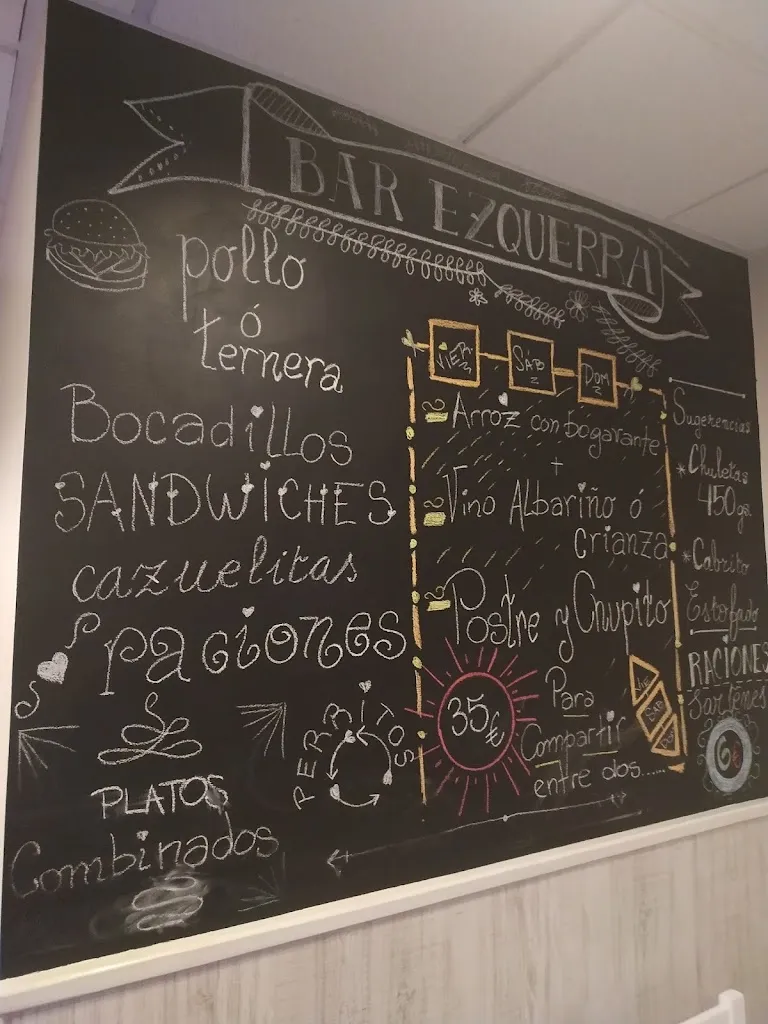 BAR EZQUERRA
pollo
ó
ternera
Bocadillos
SANDWICHES
cazuelitas
raciones
PERRITOS
PLATOS
Combinados
VIER
SÁB
DOM
Arroz con bogavante
+
Vino Albariño ó
Crianza
Postre y Chupito
35€
Para
Compartir
entre dos......
VIE
SAB
Sugerencias
*Chuletas
450gs
*Cabrito
Estofado
RACIONES
Sartenes
6€